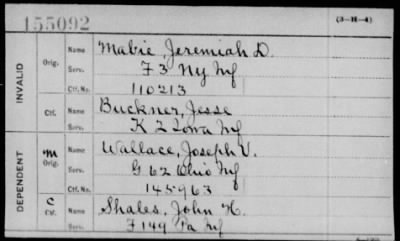 155092
(3-H-4)
INVALID
Orig. Name Mabie, Jeremiah D.
Serv. F 3 Ny Inf
Ctf. No. 110213
Ctf. Name Buckner, Jesse
Serv. K 2 Iowa Inf
DEPENDENT
m Orig. Name Wallace, Joseph V.
Serv. G 62 Ohio Inf
Ctf. No. 145963
C Ctf. Name Shales, John H.
Serv. F 149 Pa Inf